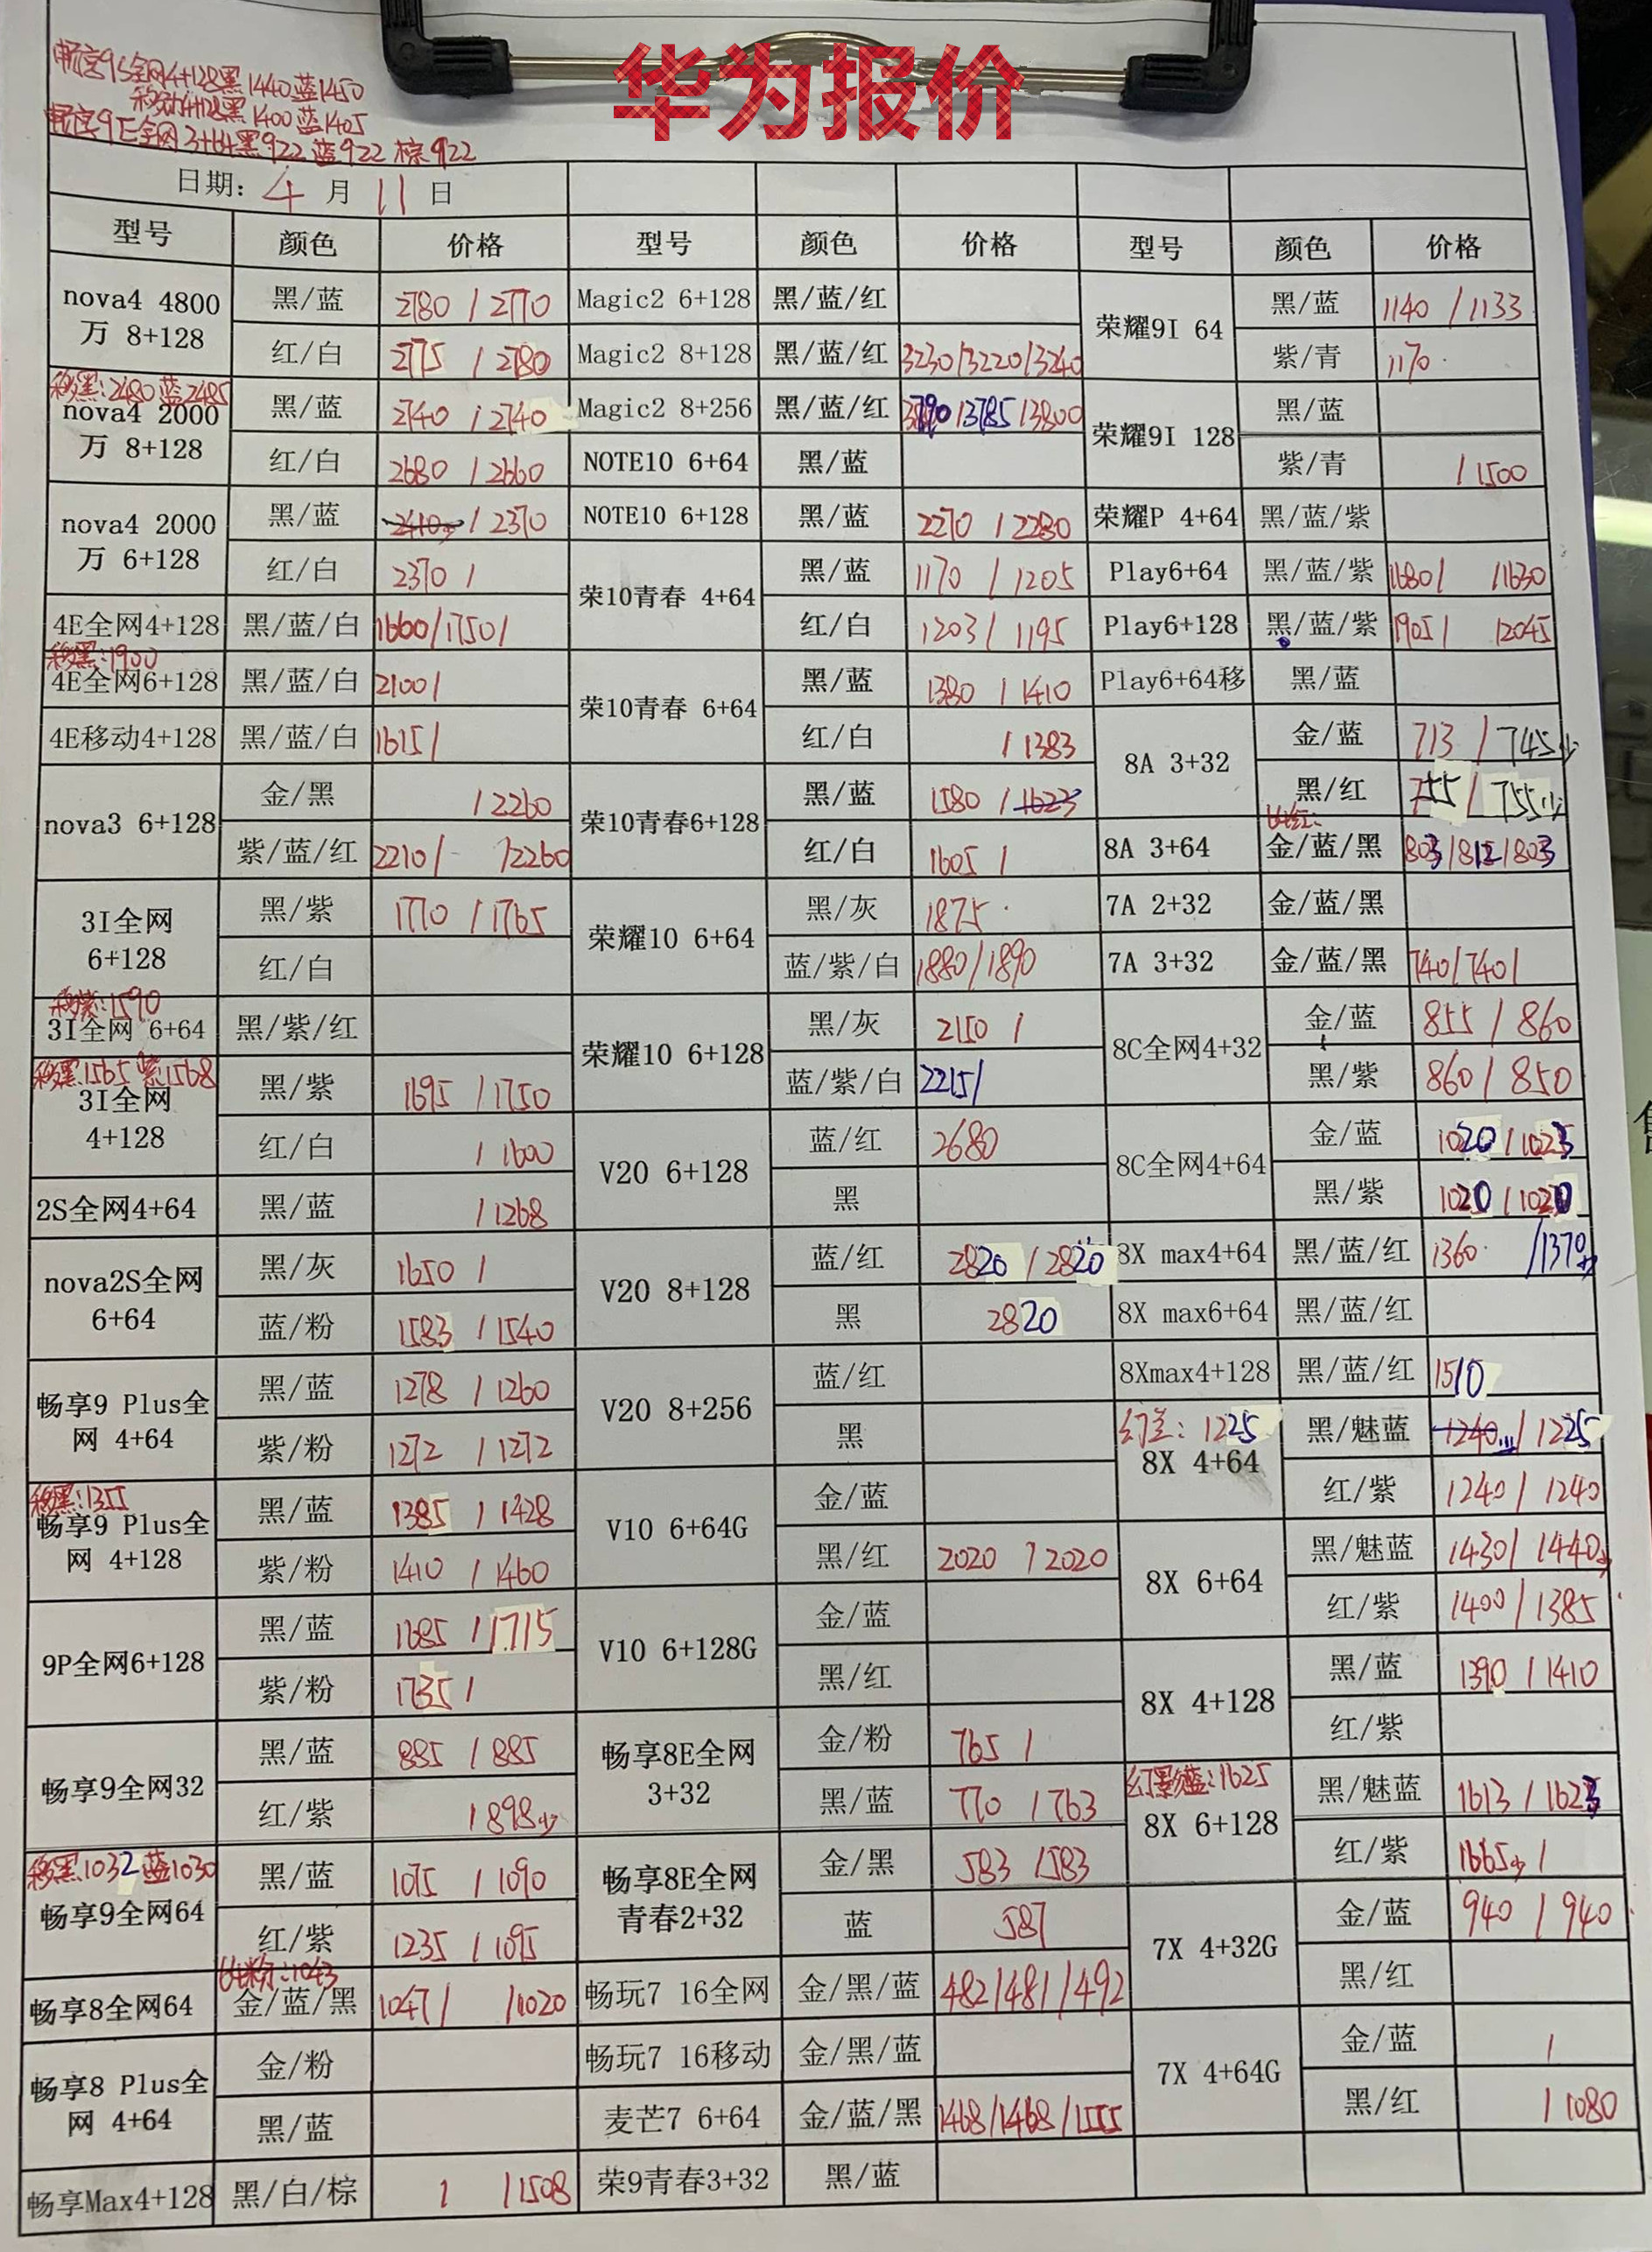 华为报价
畅享9S全网4+128黑1440蓝1450
移动4+128黑1400蓝1405
畅享9E全网3+64黑922蓝922棕922
日期: 4 月 11 日
型号 颜色 价格 型号 颜色 价格 型号 颜色 价格
nova4 4800万 8+128 黑/蓝 2780 / 2770 Magic2 6+128 黑/蓝/红 荣耀9I 64 黑/蓝 1140 / 1133
红/白 2775 / 2780 Magic2 8+128 黑/蓝/红 3230/3220/3240 紫/青 1170
移黑:2480 蓝2485
nova4 2000万 8+128 黑/蓝 2740 / 2740 Magic2 8+256 黑/蓝/红 3790/3785/3800 荣耀9I 128 黑/蓝
红/白 2680 / 2660 NOTE10 6+64 黑/蓝 紫/青 / 1500
nova4 2000万 6+128 黑/蓝 2410 / 2370 NOTE10 6+128 黑/蓝 2270 / 2280 荣耀P 4+64 黑/蓝/紫
红/白 2370 / 荣10青春 4+64 黑/蓝 1170 / 1205 Play6+64 黑/蓝/紫 1680/ /1630
4E全网4+128 黑/蓝/白 1660/1750/ 红/白 1203 / 1195 Play6+128 黑/蓝/紫 1905/ /2045
移黑:1900
4E全网6+128 黑/蓝/白 2100/ 荣10青春 6+64 黑/蓝 1380 / 1410 Play6+64移 黑/蓝
4E移动4+128 黑/蓝/白 1615/ 红/白 / 1383 8A 3+32 金/蓝 713 / 745少
nova3 6+128 金/黑 / 2260 荣10青春6+128 黑/蓝 1580 / 1623 黑/红 755 / 755少
64红:
紫/蓝/红 2210/ /2260 红/白 1605 / 8A 3+64 金/蓝/黑 803/812/803
3I全网 6+128 黑/紫 1770 / 1765 荣耀10 6+64 黑/灰 1875 7A 2+32 金/蓝/黑
红/白 蓝/紫/白 1880/1890 7A 3+32 金/蓝/黑 740/740/
移紫:1590
3I全网 6+64 黑/紫/红 荣耀10 6+128 黑/灰 2150 / 8C全网4+32 金/蓝 855 / 860
移黑1565 紫1568
3I全网 4+128 黑/紫 1695 / 1750 蓝/紫/白 2215/ 黑/紫 860 / 850
红/白 / 1600 V20 6+128 蓝/红 2680 8C全网4+64 金/蓝 1020 / 1023
2S全网4+64 黑/蓝 / 1268 黑 黑/紫 1020 / 1020
nova2S全网 6+64 黑/灰 1650 / V20 8+128 蓝/红 2820 / 2820 8X max4+64 黑/蓝/红 1360 /1370少
蓝/粉 1583 / 1540 黑 2820 8X max6+64 黑/蓝/红
畅享9 Plus全网 4+64 黑/蓝 1278 / 1260 V20 8+256 蓝/红 8Xmax4+128 黑/蓝/红 1510
紫/粉 1272 / 1272 黑 幻兰: 1225 8X 4+64 黑/魅蓝 1240 / 1225
移黑:1355
畅享9 Plus全网 4+128 黑/蓝 1385 / 1428 V10 6+64G 金/蓝 红/紫 1240 / 1240
紫/粉 1410 / 1460 黑/红 2020 / 2020 8X 6+64 黑/魅蓝 1430 / 1440少
9P全网6+128 黑/蓝 1685 / 1715 V10 6+128G 金/蓝 红/紫 1400 / 1385
紫/粉 1735 / 黑/红 8X 4+128 黑/蓝 1390 / 1410
畅享9全网32 黑/蓝 885 / 885 畅享8E全网 3+32 金/粉 765 / 红/紫
红/紫 / 898少 黑/蓝 770 / 763 幻影蓝:1625 8X 6+128 黑/魅蓝 1613 / 1623
移黑1032 蓝1030
畅享9全网64 黑/蓝 1075 / 1090 畅享8E全网青春2+32 金/黑 583 /583 红/紫 1665少 /
红/紫 1235 / 1095 蓝 587 7X 4+32G 金/蓝 940 / 940
64粉:1043
畅享8全网64 金/蓝/黑 1047/ /1020 畅玩7 16全网 金/黑/蓝 482/481/492 黑/红
畅享8 Plus全网 4+64 金/粉 畅玩7 16移动 金/黑/蓝 7X 4+64G 金/蓝 /
黑/蓝 麦芒7 6+64 金/蓝/黑 1468/1468/1555 黑/红 / 1080
畅享Max4+128 黑/白/棕 / /1508 荣9青春3+32 黑/蓝